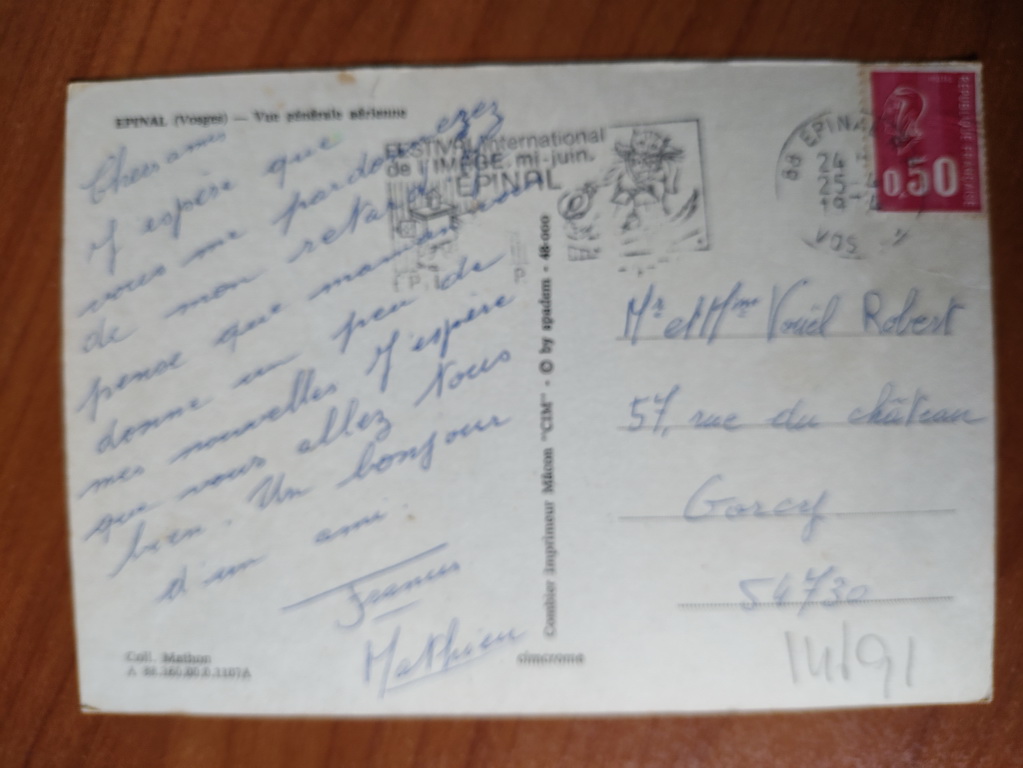 EPINAL (Vosges) — Vue générale aérienne
Chers amis
J'espère que
vous me pardonnerez
de mon retard. Je
pense que maman vous
donne un peu de
mes nouvelles J'espère
que vous allez tous
bien. Un bonjour
d'un ami.
Francis
Mathieu
Coll. Mathon
FESTIVAL international
de l'IMAGE. mi-juin.
EPINAL
88 EPINAL
24
25-4
VOS
0,50
Combier Imprimeur Mâcon "CIM" - © by spadem - 48-000
Mr et Mme Vouël Robert
57, rue du château
Gorcy
54730
14/91
cimcrome